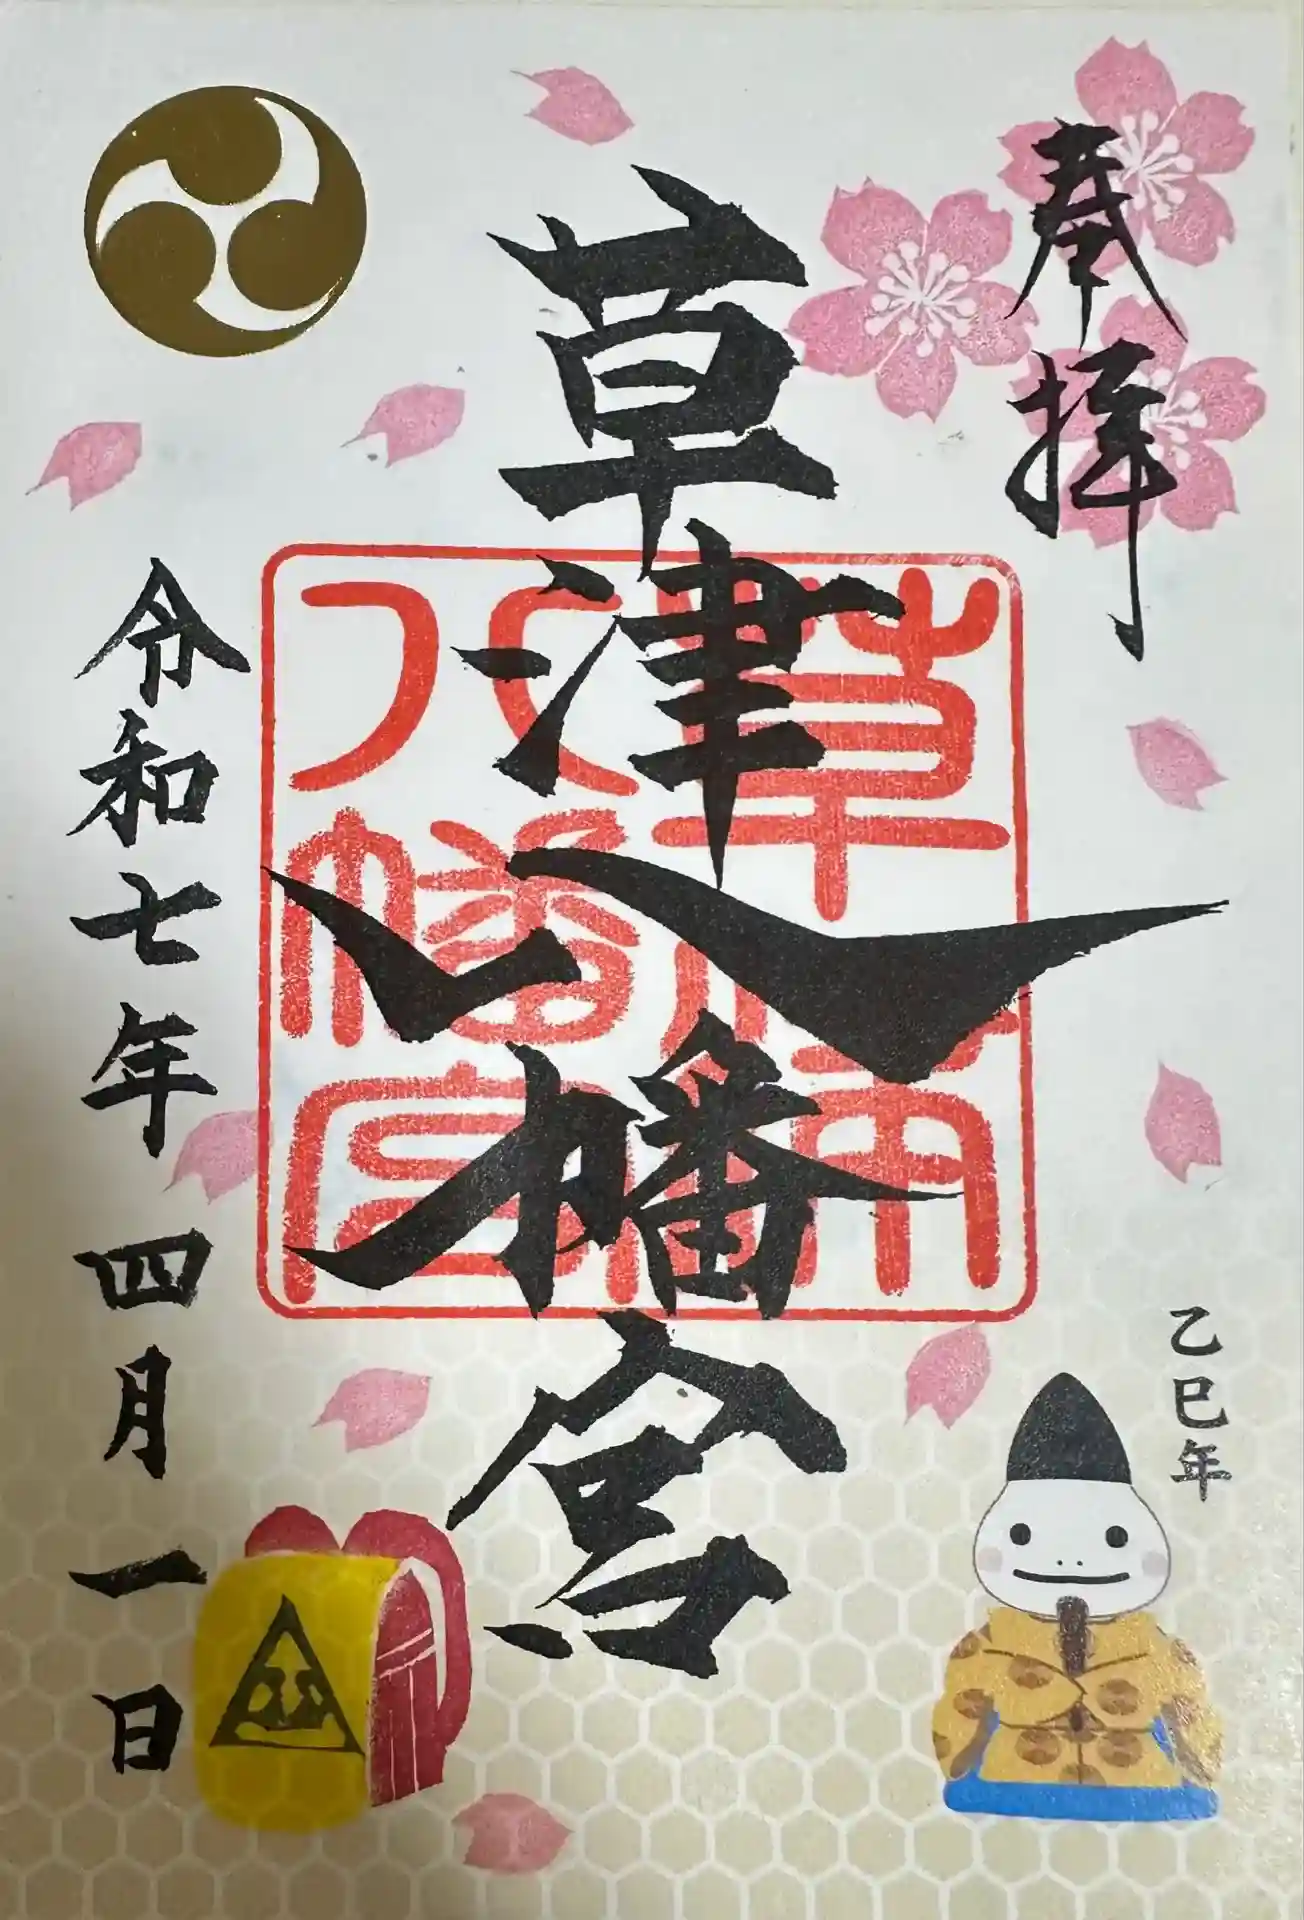 奉拝
草津八幡宮
草津八幡宮
令和七年四月一日
乙巳年